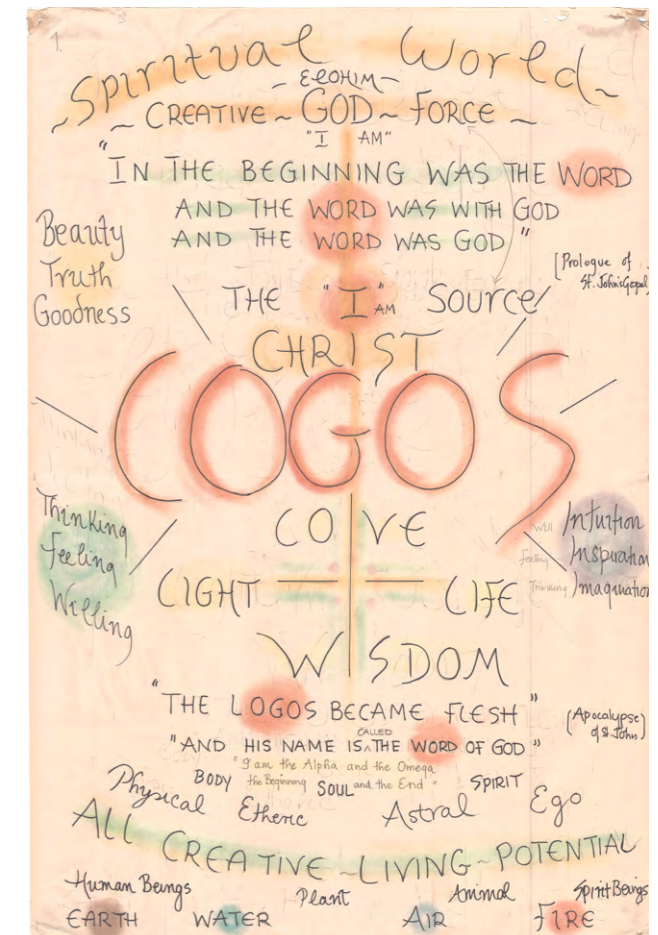 1.
~Spiritual World~
~ ELOHIM ~
~ CREATIVE ~ GOD ~ FORCE ~
"I AM"
"IN THE BEGINNING WAS THE WORD
AND THE WORD WAS WITH GOD
AND THE WORD WAS GOD"
[Prologue of
St. John's Gospel]
Beauty
Truth
Goodness
THE "I" AM SOURCE
CHRIST
LOGOS
LOVE
LIGHT LIFE
WISDOM
Thinking
Feeling
Willing
Will Intuition
Feeling Inspiration
Thinking Imagination
"THE LOGOS BECAME FLESH"
(Apocalypse
of St. John)
CALLED
"AND HIS NAME IS ^ THE WORD OF GOD"
"I am the Alpha and the Omega
the Beginning and the End"
BODY SOUL SPIRIT
Physical Etheric Astral Ego
ALL CREATIVE ~ LIVING ~ POTENTIAL
Human Beings Plant Animal Spirit Beings
EARTH WATER AIR FIRE